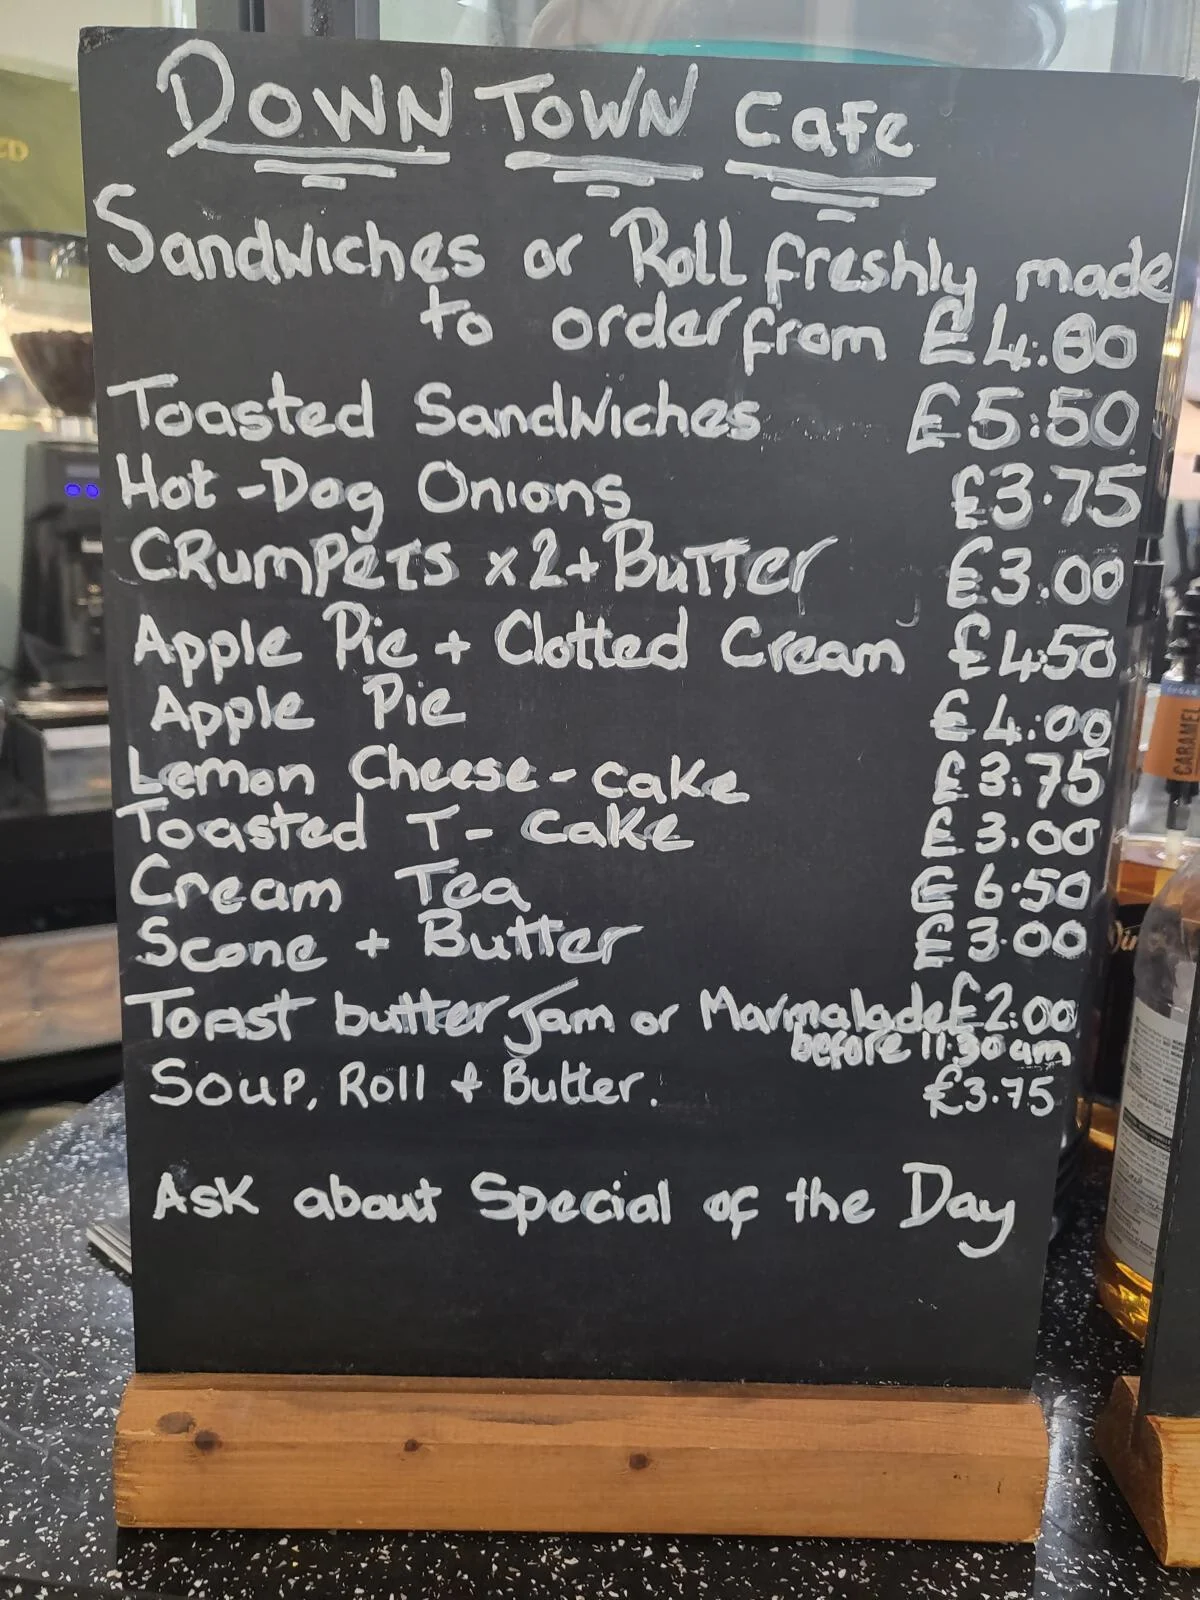 DOWN TOWN Cafe
Sandwiches or Roll freshly made
to order from £4.80
Toasted Sandwiches £5:50
Hot-Dog Onions £3.75
CRumPeTs x2+Butter £3.00
Apple Pie + Clotted Cream £4.50
Apple Pie £4.00
Lemon Cheese-cake £3.75
Toasted T-cake £3.00
Cream Tea £6.50
Scone + Butter £3.00
Toast butter Jam or Marmalade £2:00
before 11.30am
Soup, Roll + Butter. £3.75
Ask about Special of the Day
CARAMEL